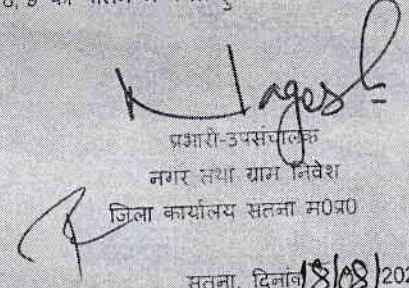 Nagesh
प्रभारी-उपसंचालक
नगर तथा ग्राम निवेश
जिला कार्यालय सतना म0प्र0
सतना, दिनांक 18/08/202